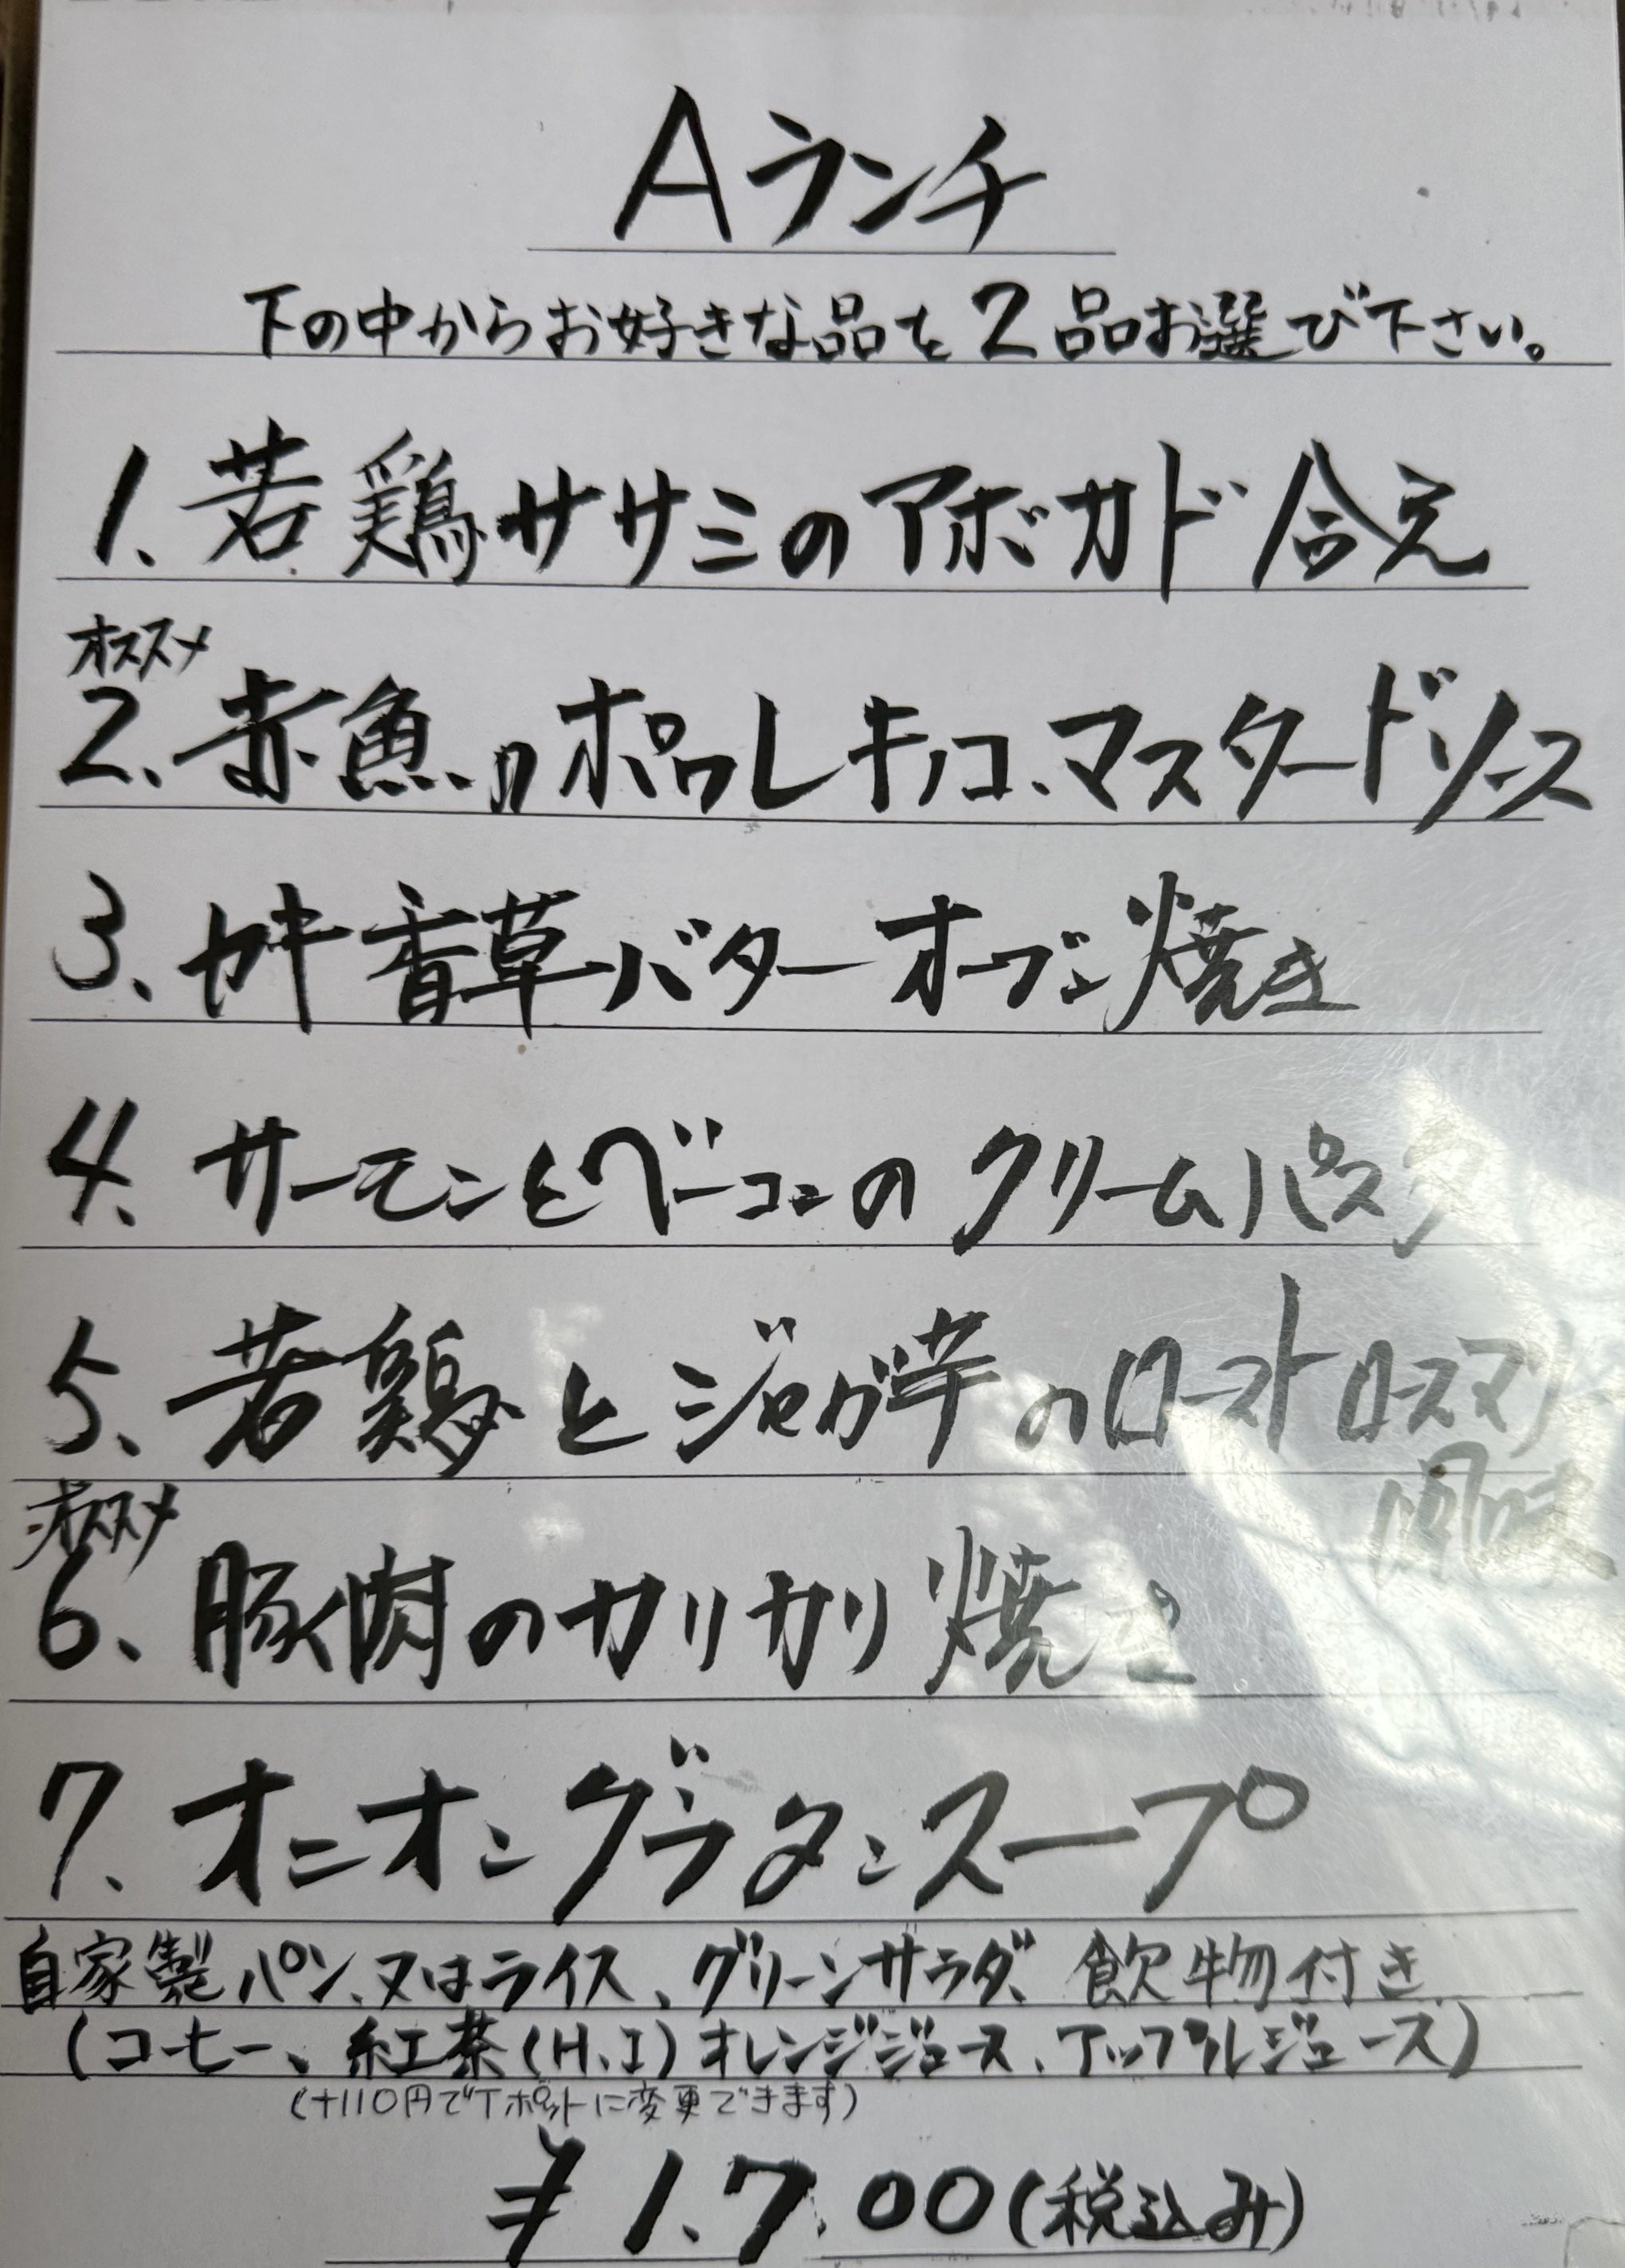 Aランチ
下の中からお好きな品を2品お選び下さい。
1、若鶏ササミのアボカド合え
オススメ
2、赤魚のポワレキノコ、マスタードソース
3、カキ香草バターオーブン焼き
4、サーモンとベーコンのクリームパスタ
5、若鶏とジャガ芋のローストローズマリー
風味
オススメ
6、豚肉のカリカリ焼き
7、オニオングラタンスープ
自家製パン、又はライス、グリーンサラダ、飲物付き
(コーヒー、紅茶(H、I)オレンジジュース、アップルジュース)
(+110円でTポットに変更できます)
¥1.7.00(税込み)